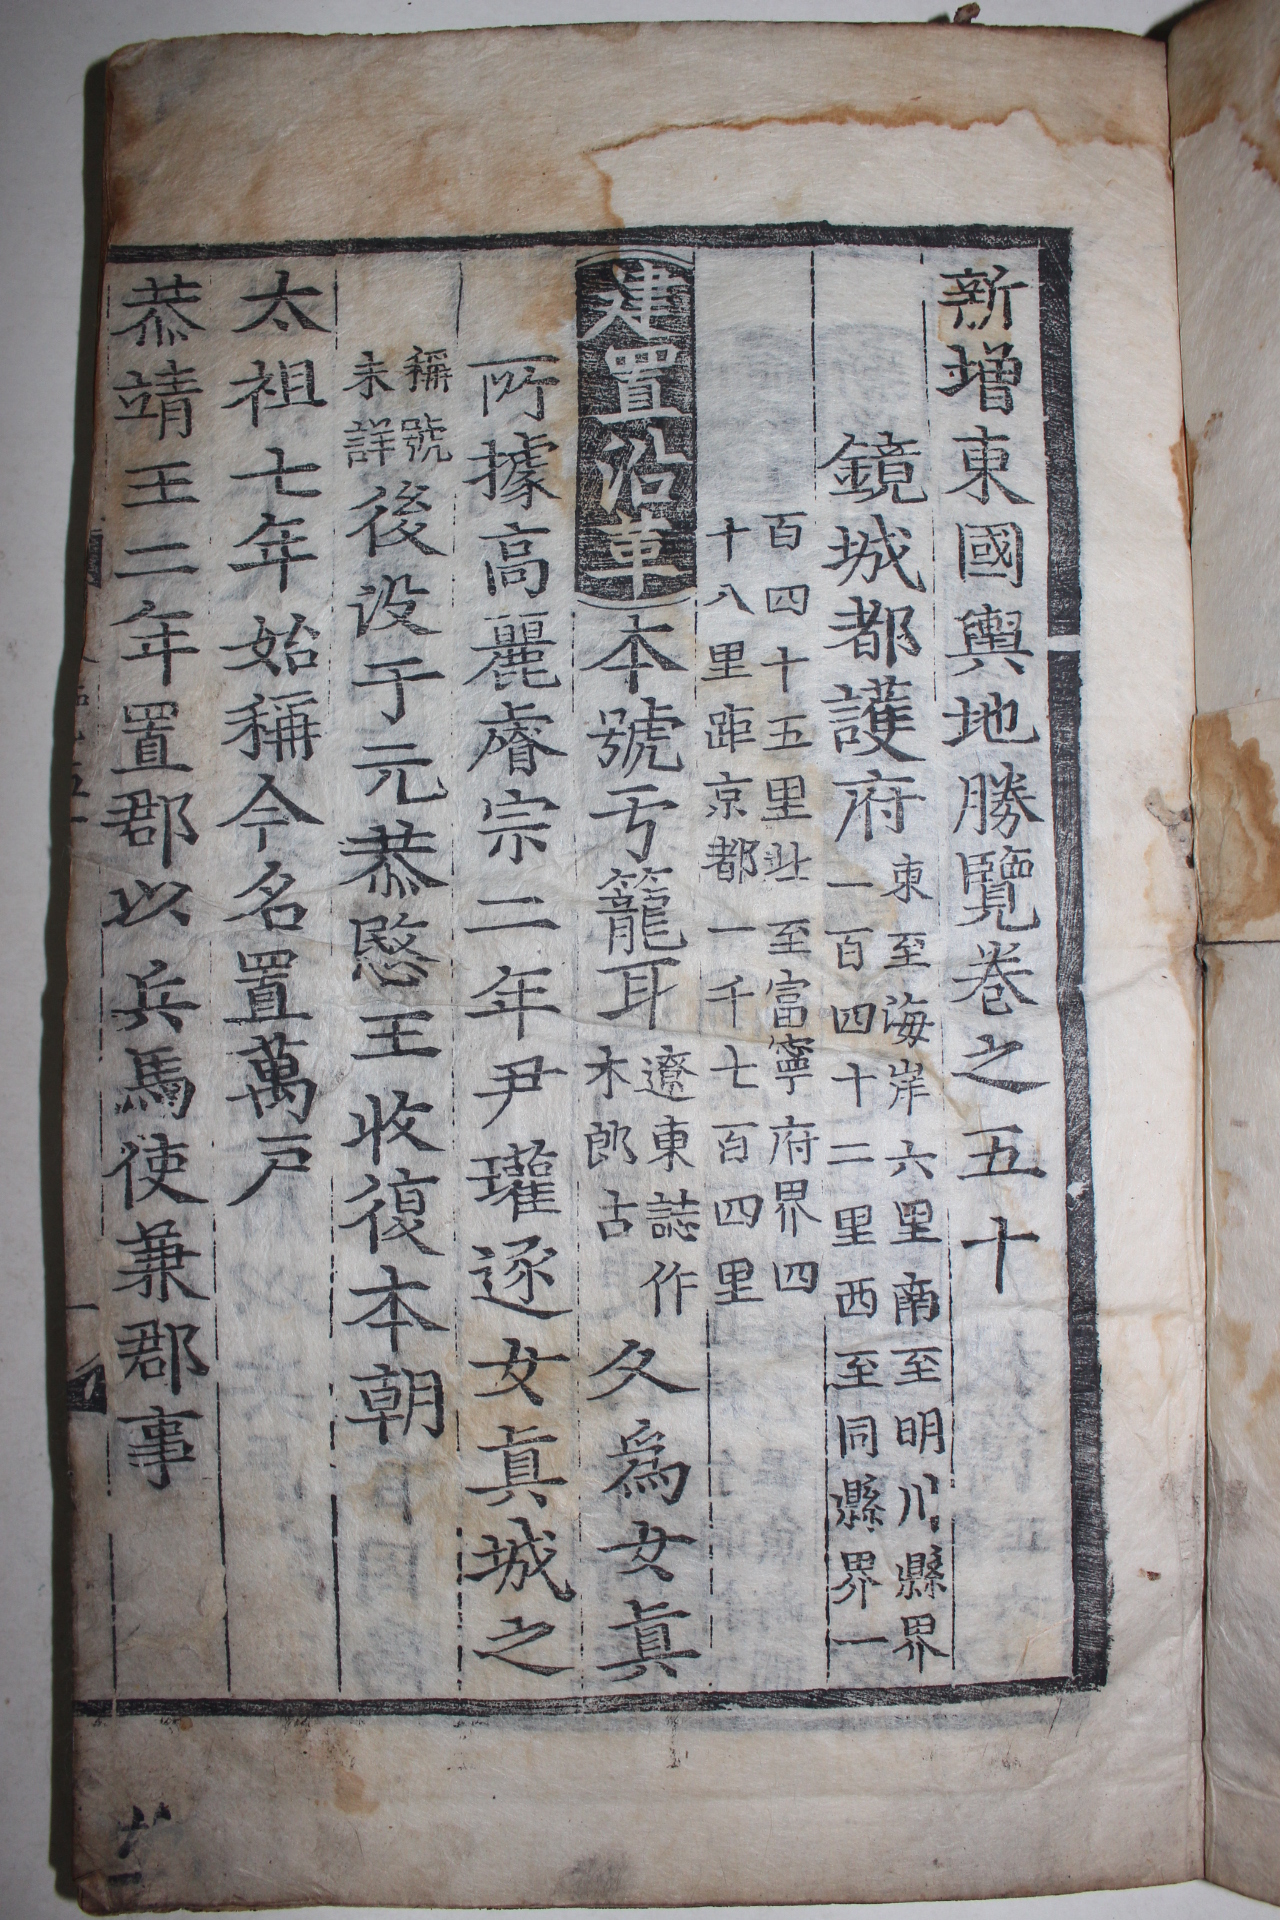 新增東國輿地勝覽卷之五十
鏡城都護府東至海岸六里南至明川縣界一百四十二里西至同縣界一
百四十五里北至富寧府界四十八里距京都一千七百四里
建置沿革本號亐籠耳遼東誌作木郎古久爲女真
所據高麗睿宗二年尹瓘逐女真城之
稱號未詳後没于元恭愍王收復本朝
太祖七年始稱今名置萬戸
恭靖王二年置郡以兵馬使兼郡事